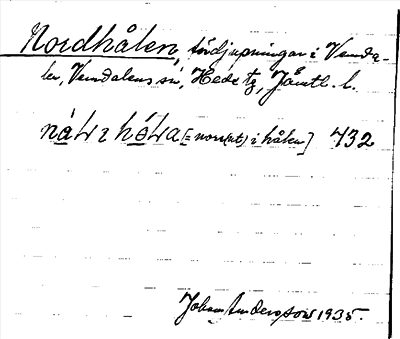 Nordhålen, fördjupningar i Vemda-
len, Vemdalens sn, Hede tg, Jämtl. l.
nàLt ɩ hóLa [= norr(ut) i hålen] 732
Johan Anderson 1935.